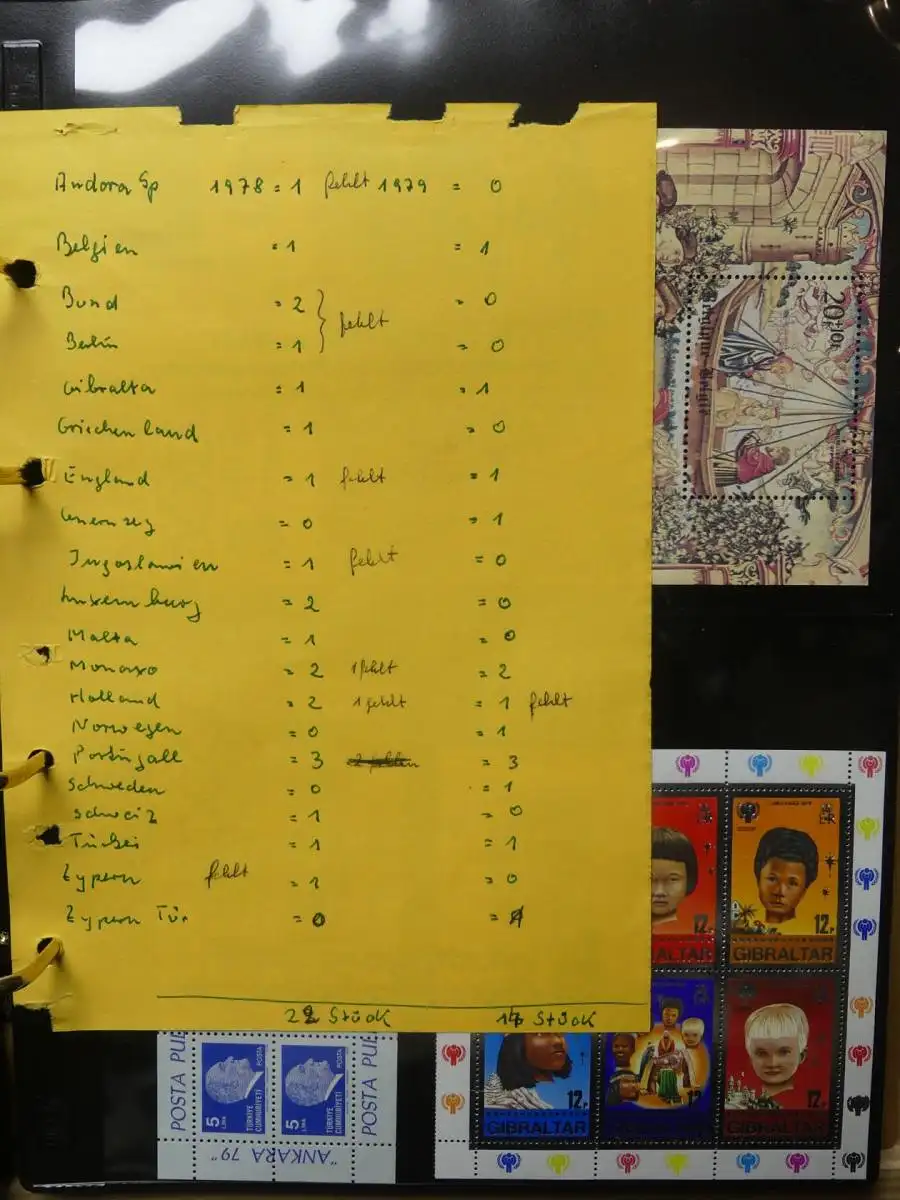 Andora Sp 1978 = 1 fehlt 1979 = 0
Belgien = 1 = 1
Bund = 2 = 0
fehlt
Berlin = 1 = 0
Gibralta = 1 = 1
Griechenland = 1 = 0
England = 1 fehlt = 1
= 0 = 1
Jugoslawien = 1 fehlt = 0
Luxemburg = 2 = 0
Malta = 1 = 0
Monaxo = 2 1 fehlt = 2
Holland = 2 1 fehlt = 1 fehlt
Norwegen = 0 = 1
Portugall = 3 = 3
Schweden = 0 = 1
Schweiz = 1 = 0
Türkei = 1 = 1
Zypern fehlt = 1 = 0
Zypern Tür = 0 =
Stück Stück
20+10F
België
12P
12P
GIBRALTAR
GIBRALTAR
POSTA PUL
5 LİRA
TÜRKİYE CUMHURİYETİ
POSTA
5 LİRA
TÜRKİYE CUMHURİYETİ
POSTA
POSTA PUL
"ANKARA 79"
12P
12
12
GIBRALTAR
GIBRALTAR